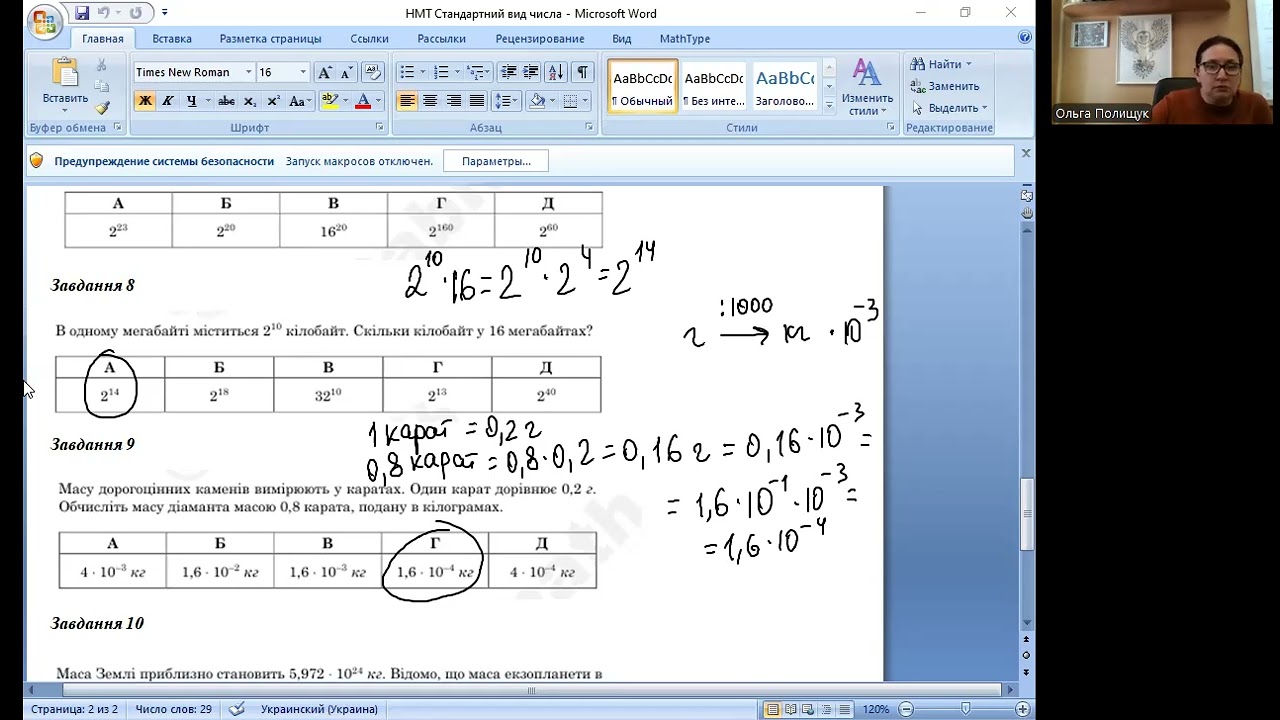 НМТ Стандартний вид числа - Microsoft Word
Главная Вставка Разметка страницы Ссылки Рассылки Рецензирование Вид MathType
Times New Roman 16
Вставить
Ж К Ч abc x₂ x² Aa
АаBbCcDc АаBbCcDc АаBbCc
¶ Обычный ¶ Без инте... Заголово...
Изменить стили
Найти
Заменить
Выделить
Буфер обмена Шрифт Абзац Стили Редактирование
Ольга Полищук
Предупреждение системы безопасности Запуск макросов отключен. Параметры...
А Б В Г Д
2²³ 2²⁰ 16²⁰ 2¹⁶⁰ 2⁶⁰
2¹⁰·16=2¹⁰·2⁴=2¹⁴
Завдання 8
:1000
г → кг ·10⁻³
В одному мегабайті міститься 2¹⁰ кілобайт. Скільки кілобайт у 16 мегабайтах?
А Б В Г Д
2¹⁴ 2¹⁸ 32¹⁰ 2¹³ 2⁴⁰
1 карат = 0,2 г
Завдання 9
0,8 карат = 0,8·0,2=0,16 г = 0,16·10⁻³ =
= 1,6·10⁻¹·10⁻³ =
=1,6·10⁻⁴
Масу дорогоцінних каменів вимірюють у каратах. Один карат дорівнює 0,2 г.
Обчисліть масу діаманта масою 0,8 карата, подану в кілограмах.
А Б В Г Д
4 · 10⁻³ кг 1,6 · 10⁻² кг 1,6 · 10⁻³ кг 1,6 · 10⁻⁴ кг 4 · 10⁻⁴ кг
Завдання 10
Маса Землі приблизно становить 5,972 · 10²⁴ кг. Відомо, що маса екзопланети в
Страница: 2 из 2 Число слов: 29 Украинский (Украина) 120%